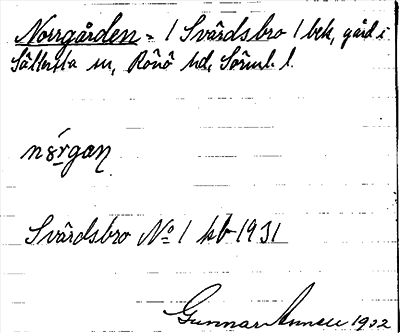 Norrgården = 1 Svärdsbro 1 bek, gård i
Sättersta sn, Rönö hd, Sörml. l.
Svärdsbro No 1 kb 1931
Gunnar 1932